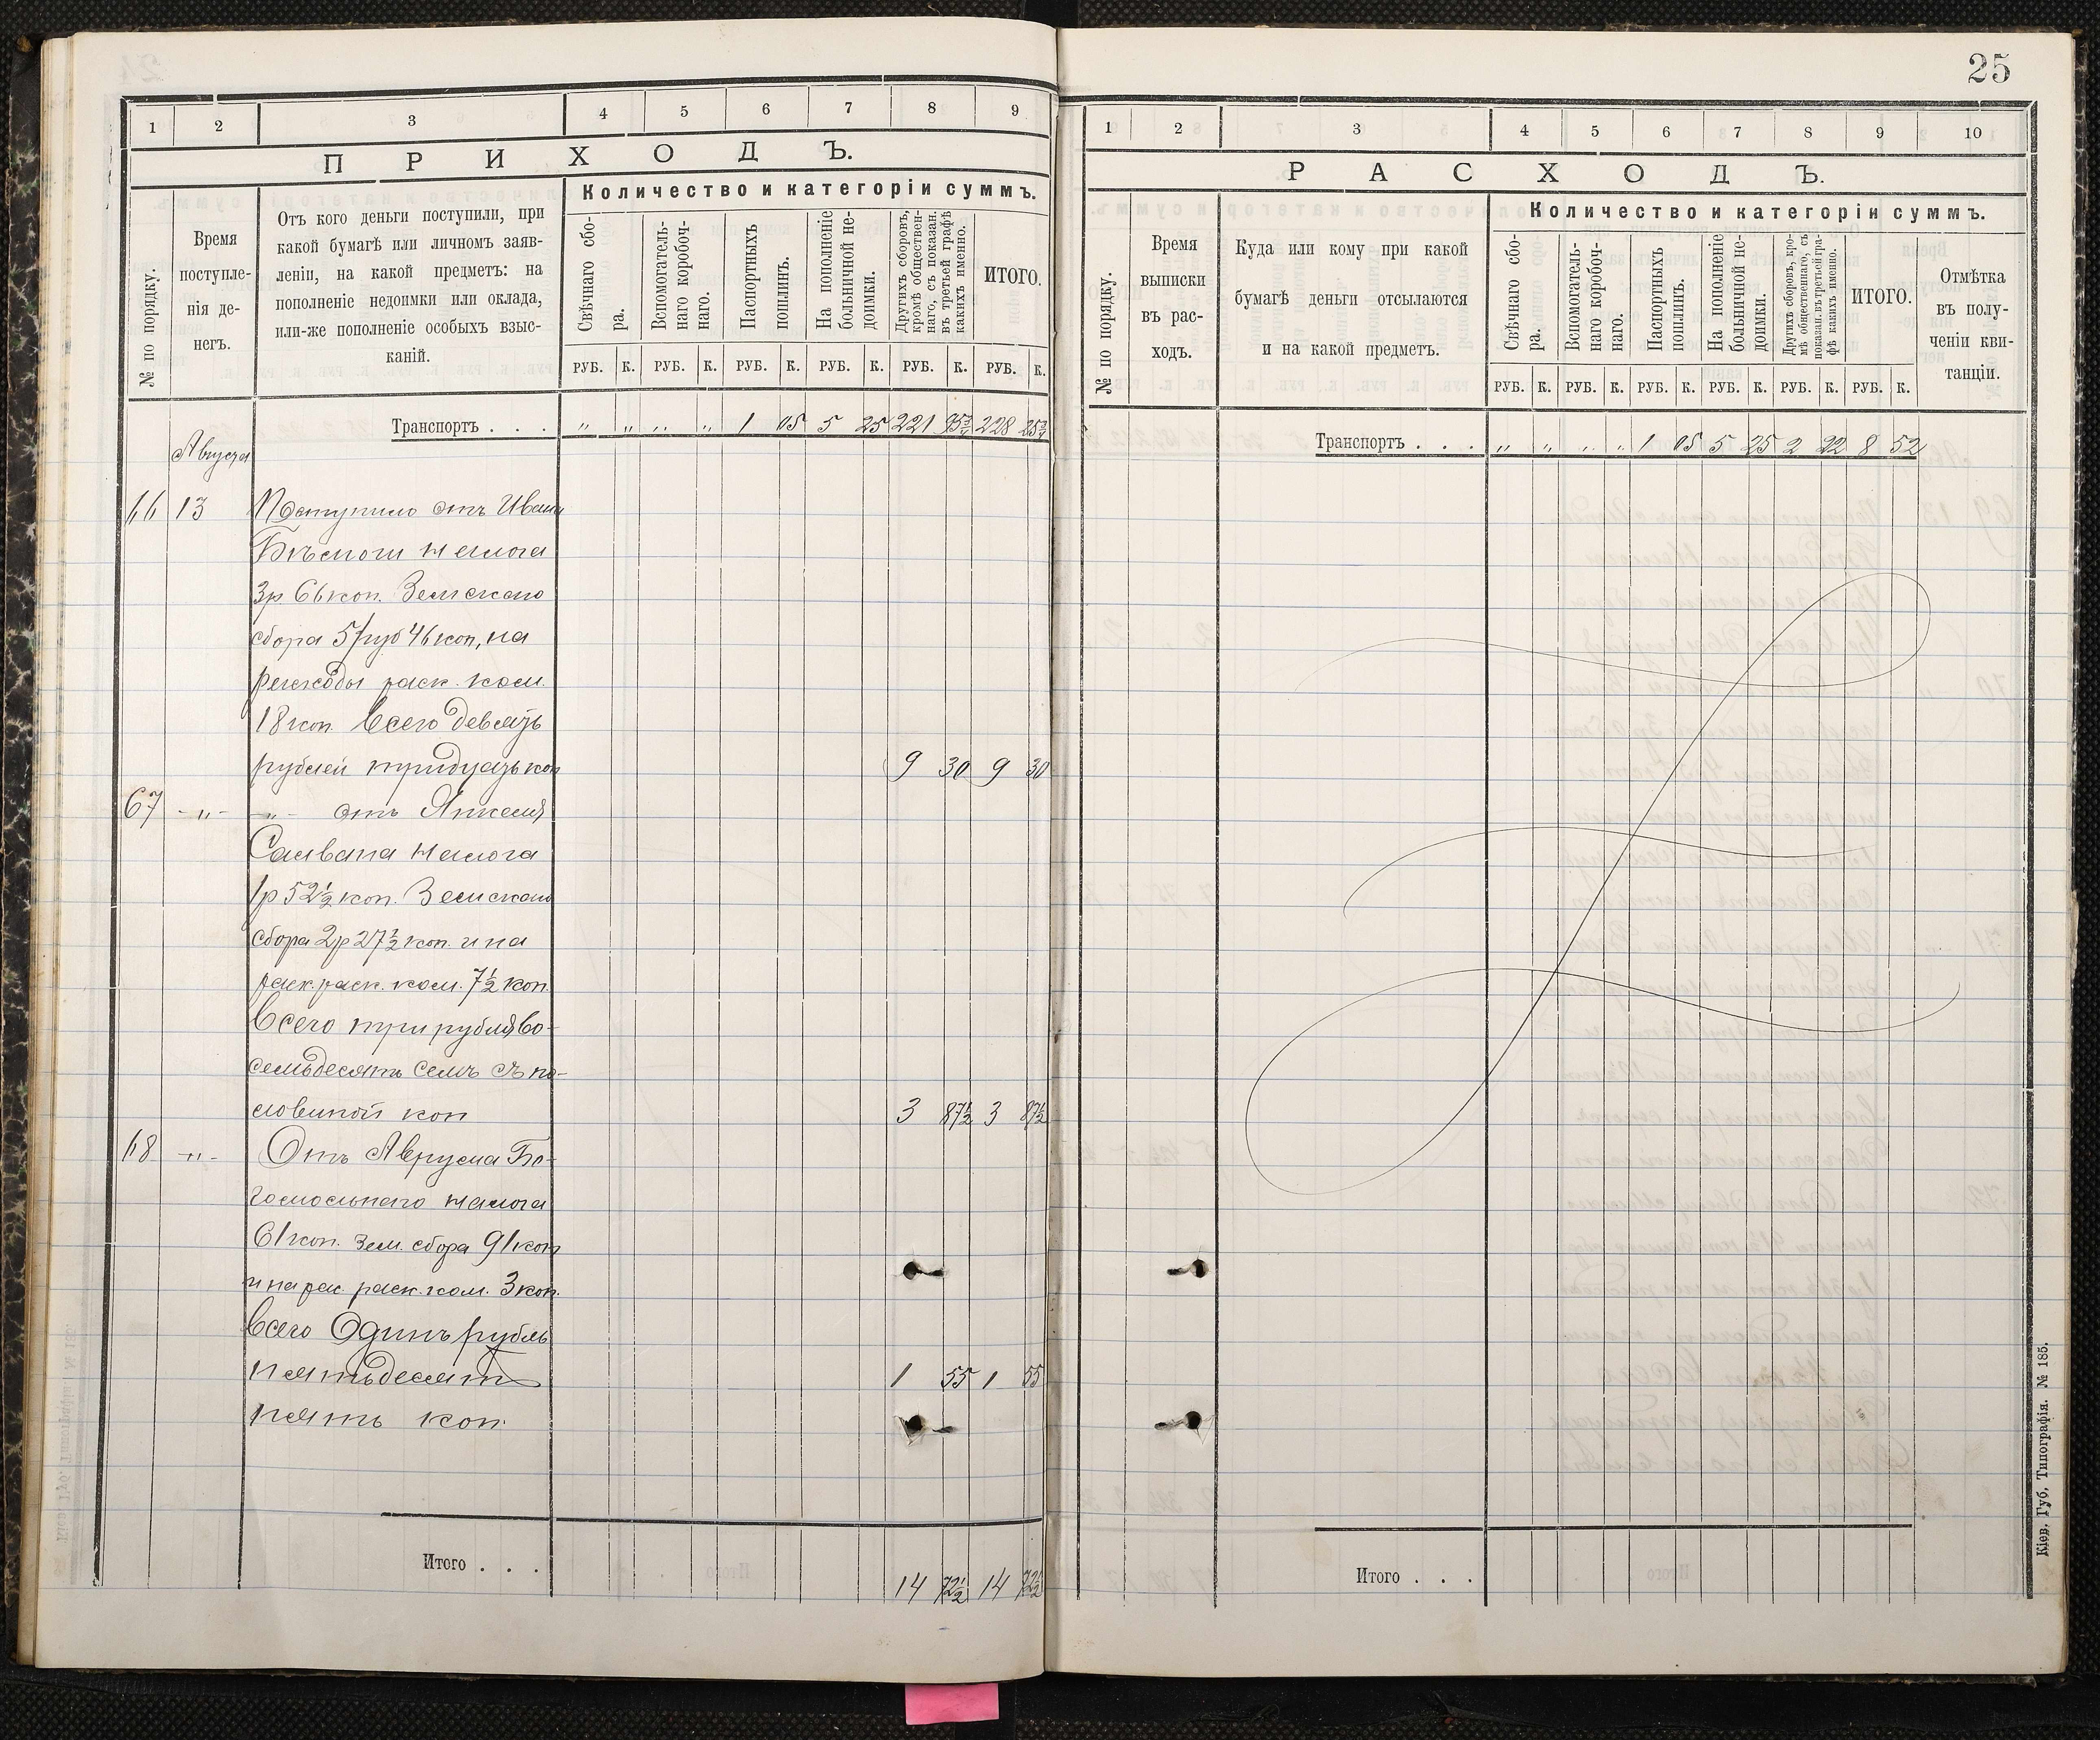 25
1 2 3 4 5 6 7 8 9
ПРИХОДЪ.
№ по порядку.
Время поступле-
нія де-
негъ.
Отъ кого деньги поступили, при
какой бумагѣ или личномъ заяв-
леніи, на какой предметъ: на
пополненіе недоимки или оклада,
или-же пополненіе особыхъ взыс-
каній.
Количество и категоріи суммъ.
Свѣчнаго сбо-
ра.
Вспомогатель-
наго коробоч-
наго.
Паспортныхъ
пошлинъ.
На пополненіе
больничной не-
доимки.
Другихъ сборовъ,
кромѣ обществен-
наго, съ показан.
въ третьей графѣ
какихъ именно.
ИТОГО.
РУБ. К. РУБ. К. РУБ. К. РУБ. К. РУБ. К. РУБ. К.
Транспортъ . . . „ „ „ „ 1 05 5 25 221 95¾ 228 25¾
Августа
66 13 Поступило отъ
налога
3р 66 коп. Земскаго
сбора 5 руб 46 коп, на
расходы раск. ком.
18 коп. Всего девять
рублей тридцать коп 9 30 9 30
67 -„- -„- отъ Янкеля
Салвана налога
1р 52½ коп. Земскаго
сбора 2р 27½ коп. и на
расх. раск. ком. 7½ коп.
Всего три рубля во-
семьдесятъ семь съ по-
ловиной коп 3 87½ 3 87½
68 -„- Отъ Аврума Бо-
гомольнаго налога
61 коп. Зем. сбора 91 коп
и на рас. раск. ком. 3 коп.
Всего Одинъ рубль
пятьдесят 1 55 1 55
пять коп.
Итого . . . 14 72½ 14 72½
1 2 3 4 5 6 7 8 9 10
РАСХОДЪ.
№ по порядку.
Время
выписки
въ рас-
ходъ.
Куда или кому при какой
бумагѣ деньги отсылаются
и на какой предметъ.
Количество и категоріи суммъ.
Свѣчнаго сбо-
ра.
Вспомогатель-
наго коробоч-
наго.
Паспортныхъ
пошлинъ.
На пополненіе
больничной не-
доимки.
Другихъ сборовъ, кро-
мѣ общественнаго, съ
показан. въ третьей гра-
фѣ какихъ именно.
ИТОГО.
Отмѣтка
въ полу-
ченіи кви-
танціи.
РУБ. К. РУБ. К. РУБ. К. РУБ. К. РУБ. К. РУБ. К.
Транспортъ . . . „ „ „ „ 1 05 5 25 2 22 8 52
Итого . . .
Кіев. Губ. Типографія. № 185.